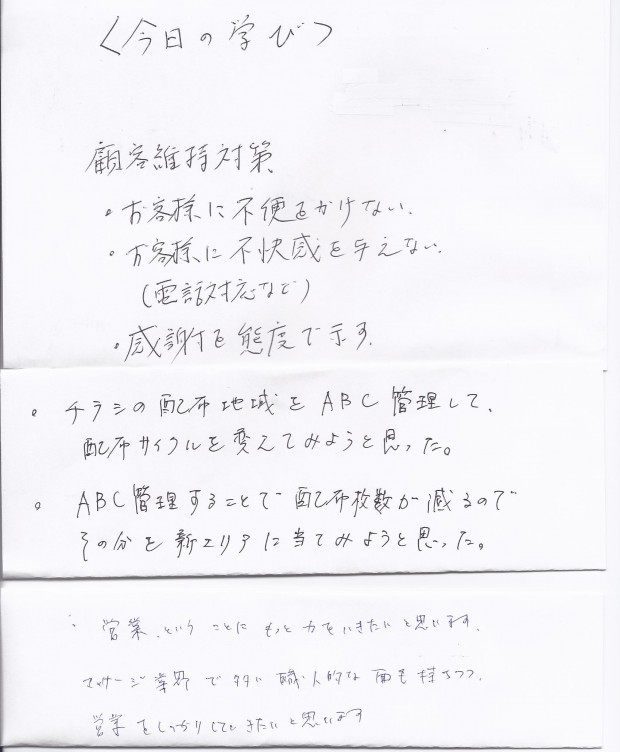 〈今日の学び〉
顧客維持対策
・お客様に不便をかけない.
・お客様に不快感を与えない.
(電話対応など)
・感謝を態度で示す.
。チラシの配布地域をABC管理して、
配布サイクルを変えてみようと思った。
。ABC管理することで配布枚数が減るので
その分を新エリアに当てみようと思った。
営業.ということにもっと力をいきたいと思います.
マッサージ業界で多い職人的な面も持ちつつ.
営業をしっかりしていきたいと思います